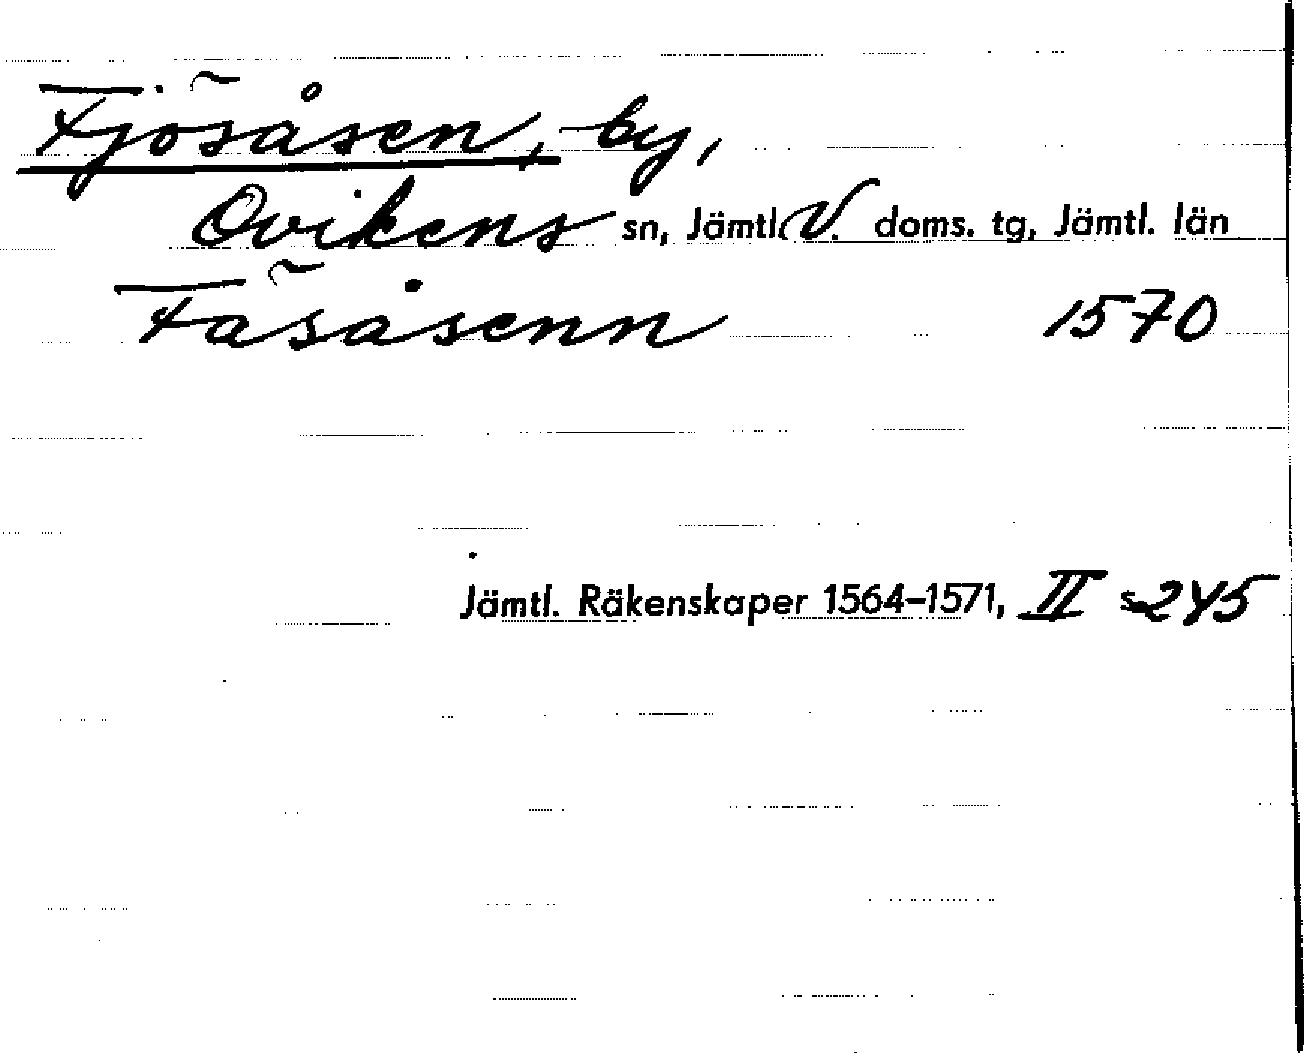 Fjösåsen, by,
Ovikens sn, Jämtl. V. doms. tg, Jämtl. län
Fäsåsenn 1570
Jämtl. Räkenskaper 1564–1571, II s. 245